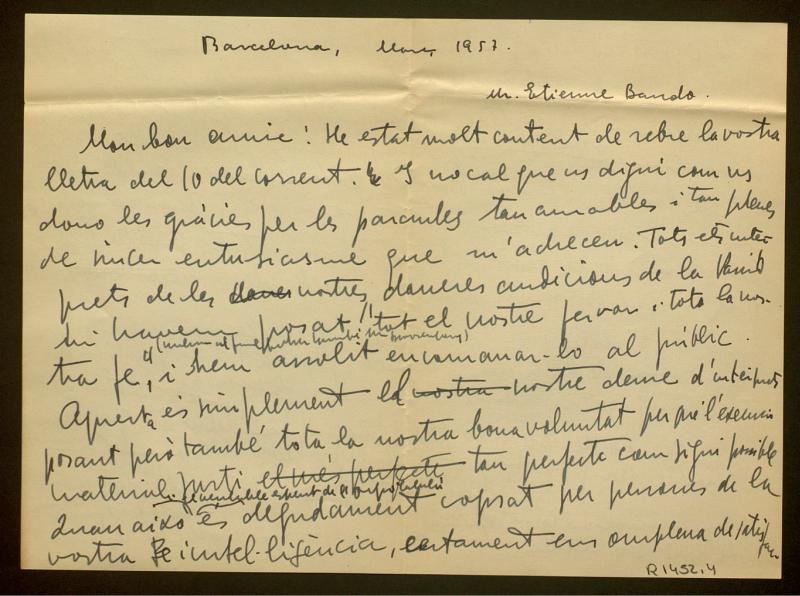 Barcelona, Març 1957.
Mr. Etienne Bando.
Mon bon amic! He estat molt content de rebre la vostra
lletra del 10 del corrent. I no cal que us digui com us
dono les gràcies per les paraules tan amables i tan plenes
de sincer entusiasme que m'adrecen. Tots els intèr-
prets de les nostres darreres audicions de la
hi havem posat tot el nostre fervor i tota la nos-
tra fe, i hem assolit encomanar-lo al públic.
Aquest és simplement el nostre deure d'intèrprets
posant però també tota la nostra bona voluntat perquè l'execució
material surti tan perfecte com sigui possible
Quan això és degudament copsat per persones de la
vostra intel·ligència, certament ens omplena de
R 1452,4